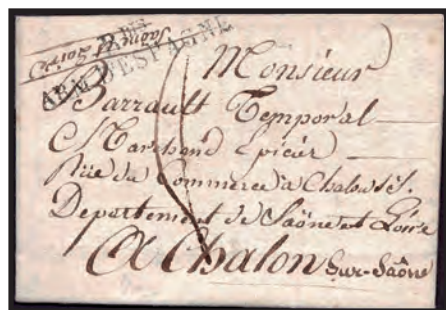 Saône et Loire
ARM. D'ESPAGNE
Monsieur
Barrault Temporal
Marchand Epicier
Rüe du Commerce a Chalon s/s.
Departement de Saône et Loire
A Chalon Sur-Saône